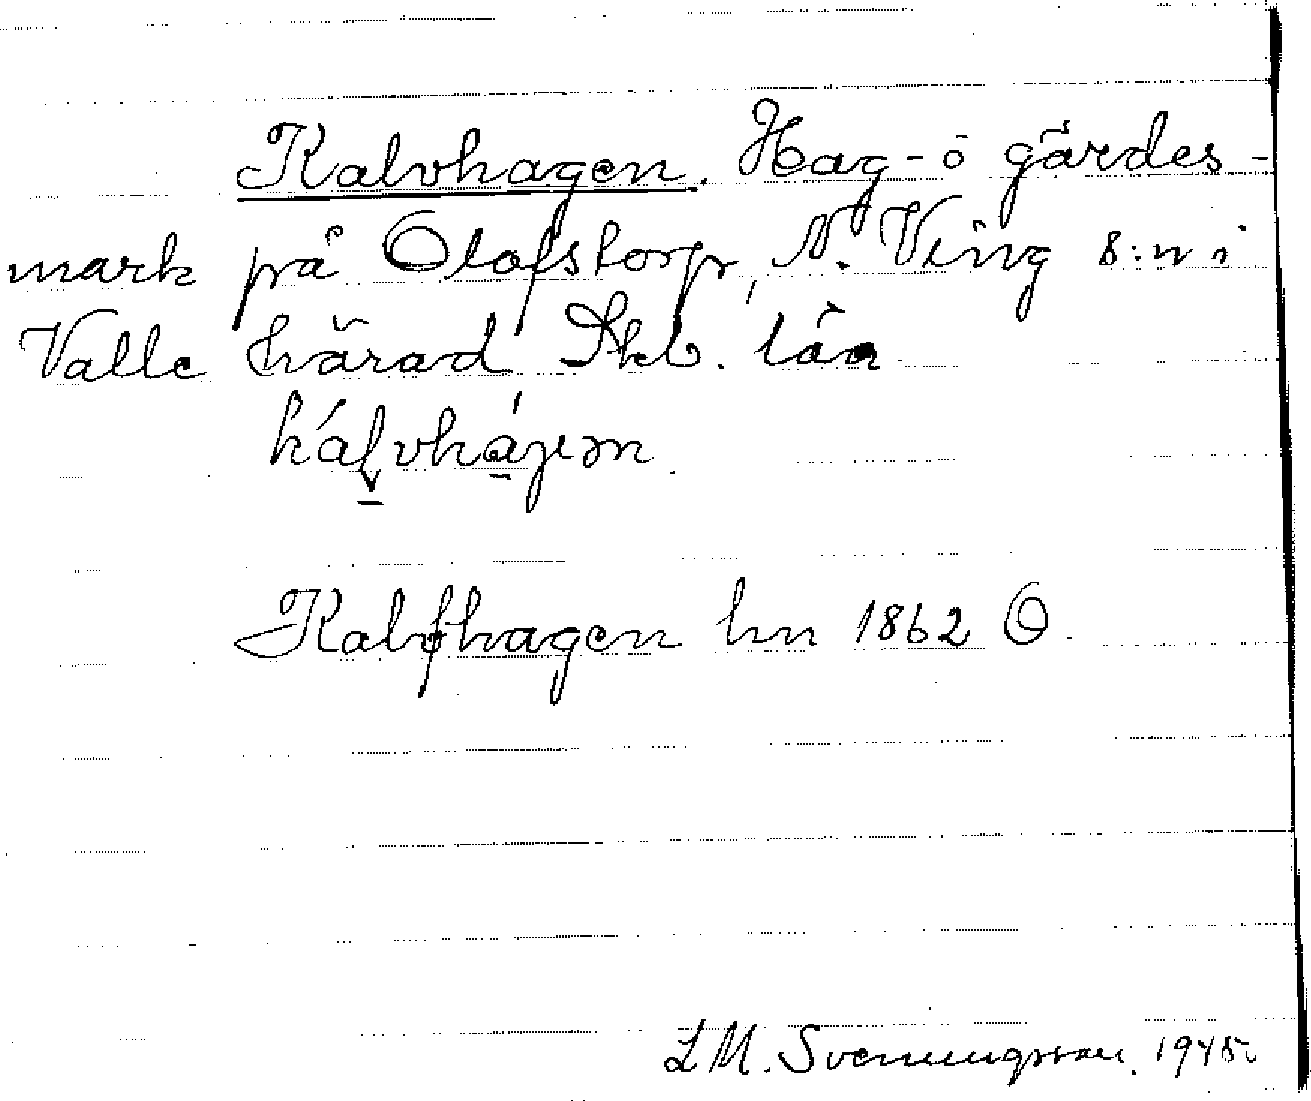 Kalvhagen. Hag- o gärdes-
mark på Olofstorp, N. Ving s:n i
Valle härad Skb. län
kálvháɣen.
Kalfhagen hm 1862 O.
L M. Svenungsson. 1945.